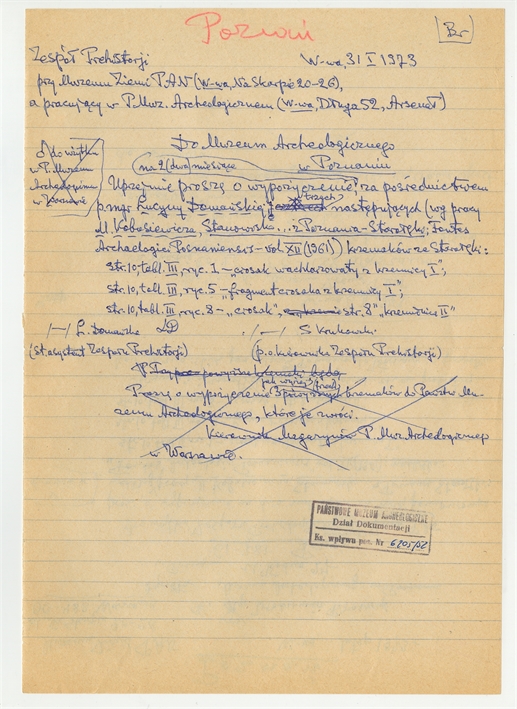 Poznań
Br
Zespół Prehistorji W-wa, 31 I 1973
przy Muzeum Ziemi PAN (W-wa, Na Skarpie 20-26),
a pracujący w P. Muz. Archeologicznem (W-wa, Długa 52, Arsenał)
Do Muzeum Archeologicznego
w Poznaniu
do użytku
w P. Muzeum
Archeologicznem
w
na 2 (dwa) miesiące
Uprzejmie proszę o wypożyczenie, za pośrednictwem
p. mgr Lucyny Domańskiej trzech następujących (wg pracy
M. Kobusiewicza, Stanowisko... z Poznania-Starołęki; Fontes
Archaeologici Posnanienses - vol. XII (1961)) krzemków ze Starołęki:
str. 10, tabl. III, ryc. 1 - „ciosak wachlarzowaty z krzemnicy I";
str. 10, tabl. III, ryc. 5 - „fragment ciosaka z krzemnicy I";
str. 10, tabl. III, ryc. 8 - „ciosak", str. 8 „krzemnica II"
/-/ L. Domańska LD /-/ S. Krukowski
(st. asystent Zespołu Prehistorji) (p.o. kierownika Zespołu Prehistorji)
powyższe będą
jak wyżej (trzech)
Proszę o wypożyczenie 3 krzemków do Państw. Mu-
zeum Archeologicznego, które je zwróci.
Kierownik Magazynów P. Muz. Archeologicznego
w Warszawie.
PAŃSTWOWE MUZEUM ARCHEOLOGICZNE
Dział Dokumentacji
Ks. wpływu poz. Nr 6205/52